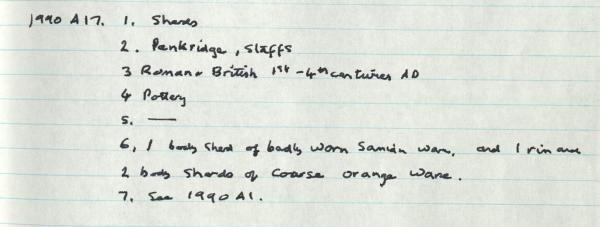 1990 A17. 1. Sherds
2. Penkridge, Staffs
3 Romano British 1st - 4th centuries AD
4 Pottery
5. —
6, 1 body sherd of badly worn Samian ware, and 1 rim and
2 body sherds of coarse orange ware.
7. See 1990 A1.